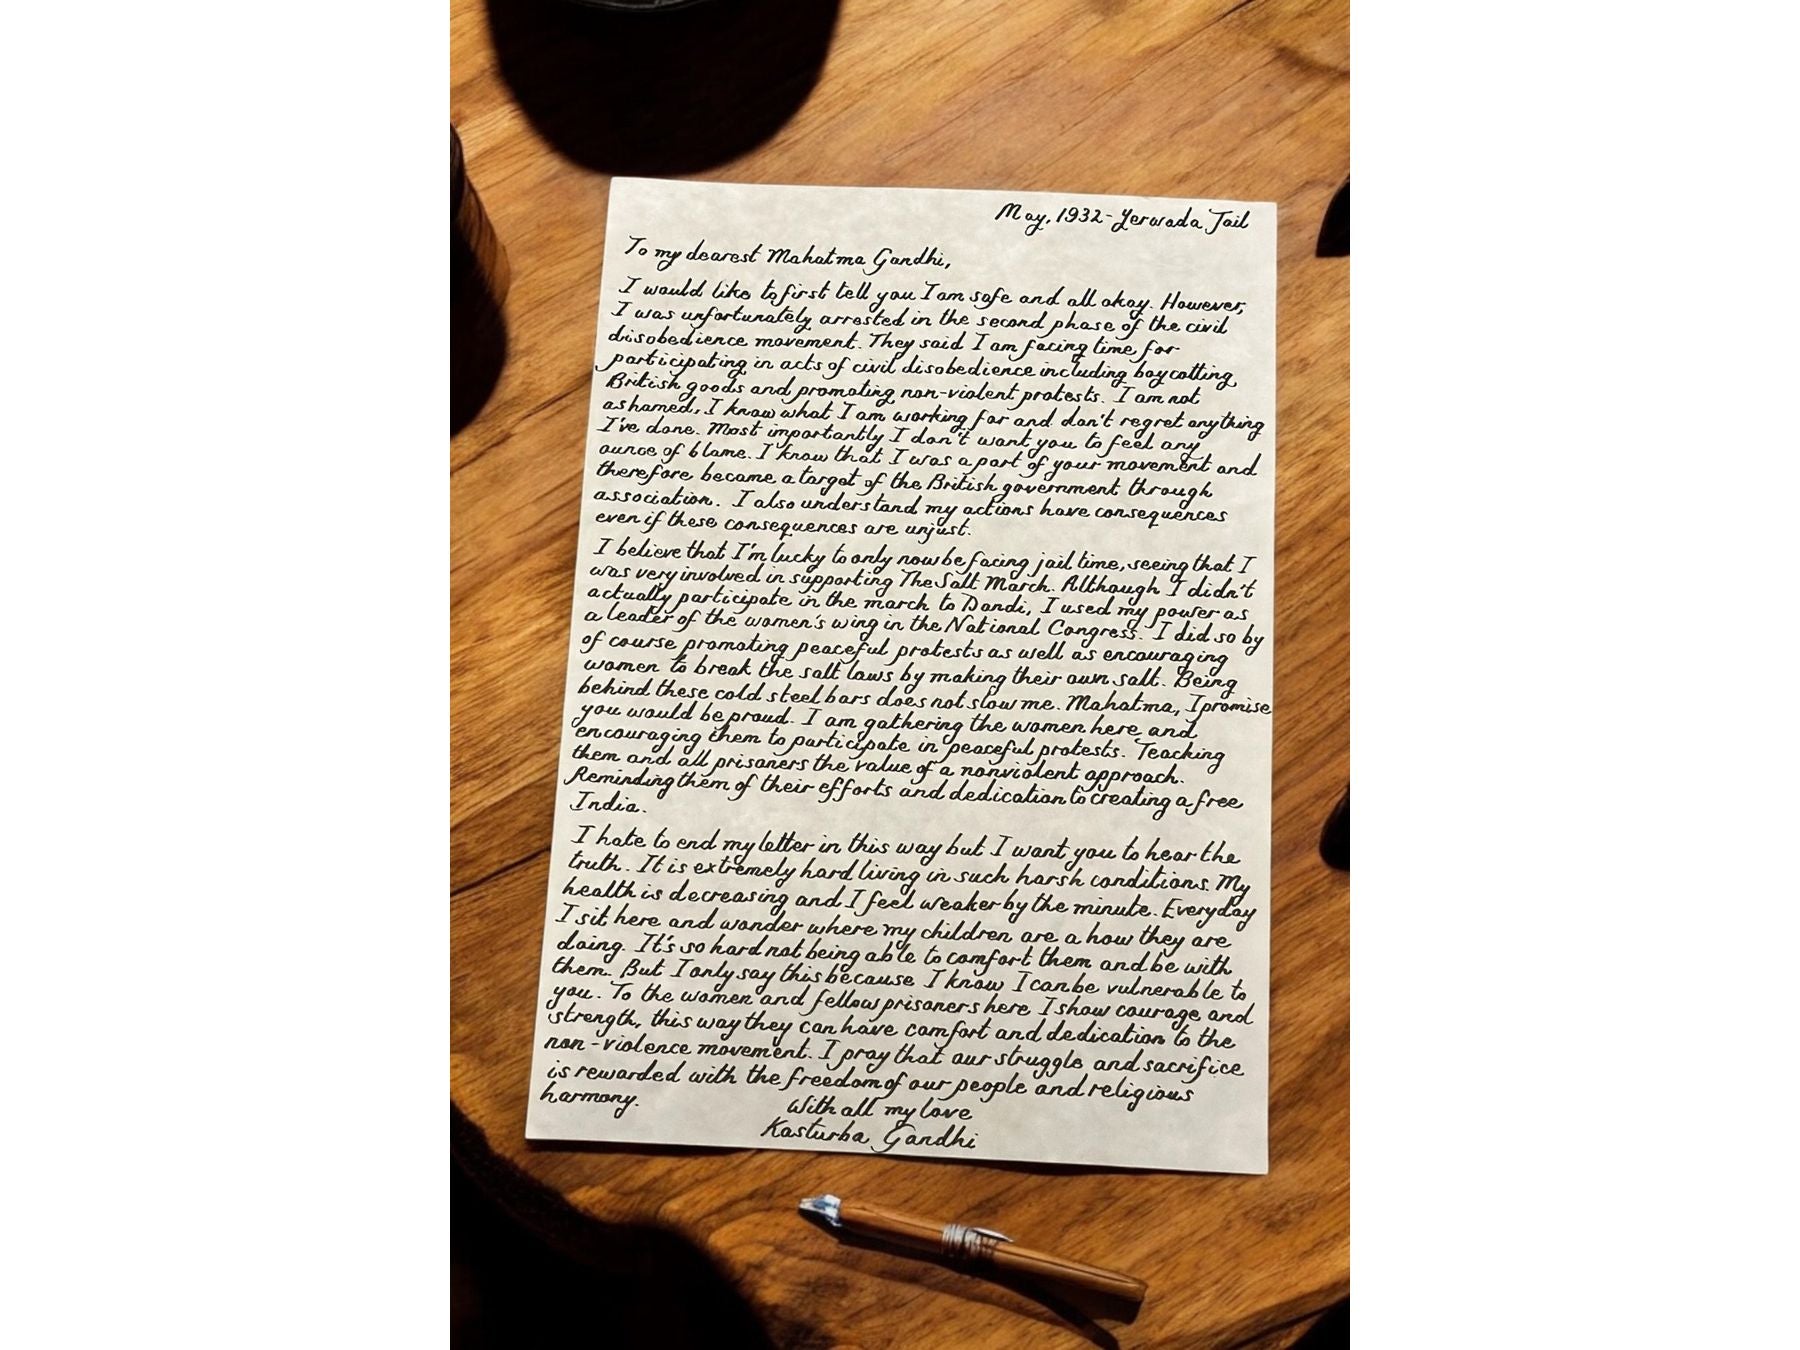 May, 1932-Yerwada Jail
To my dearest Mahatma Gandhi,
I would like to first tell you I am safe and all okay. However,
I was unfortunately arrested in the second phase of the civil
disobedience movement. They said I am facing time for
participating in acts of civil disobedience including boycotting
British goods and promoting non-violent protests. I am not
ashamed, I know what I am working for and don't regret anything
I've done. Most importantly I don't want you to feel any
ounce of blame. I know that I was a part of your movement and
therefore became a target of the British government through
association. I also understand my actions have consequences
even if these consequences are unjust.
I believe that I'm lucky to only now be facing jail time, seeing that I
was very involved in supporting The Salt March. Although I didn't
actually participate in the march to Dandi, I used my power as
a leader of the women's wing in the National Congress. I did so by
of course promoting peaceful protests as well as encouraging
women to break the salt laws by making their own salt. Being
behind these cold steel bars does not slow me. Mahatma, I promise
you would be proud. I am gathering the women here and
encouraging them to participate in peaceful protests. Teaching
them and all prisoners the value of a nonviolent approach.
Reminding them of their efforts and dedication to creating a free
India.
I hate to end my letter in this way but I want you to hear the
truth. It is extremely hard living in such harsh conditions. My
health is decreasing and I feel weaker by the minute. Everyday
I sit here and wonder where my children are a how they are
doing. It's so hard not being able to comfort them and be with
them. But I only say this because I know I can be vulnerable to
you. To the women and fellow prisoners here I show courage and
strength, this way they can have comfort and dedication to the
non-violence movement. I pray that our struggle and sacrifice
is rewarded with the freedom of our people and religious
harmony.
With all my love
Kasturba Gandhi